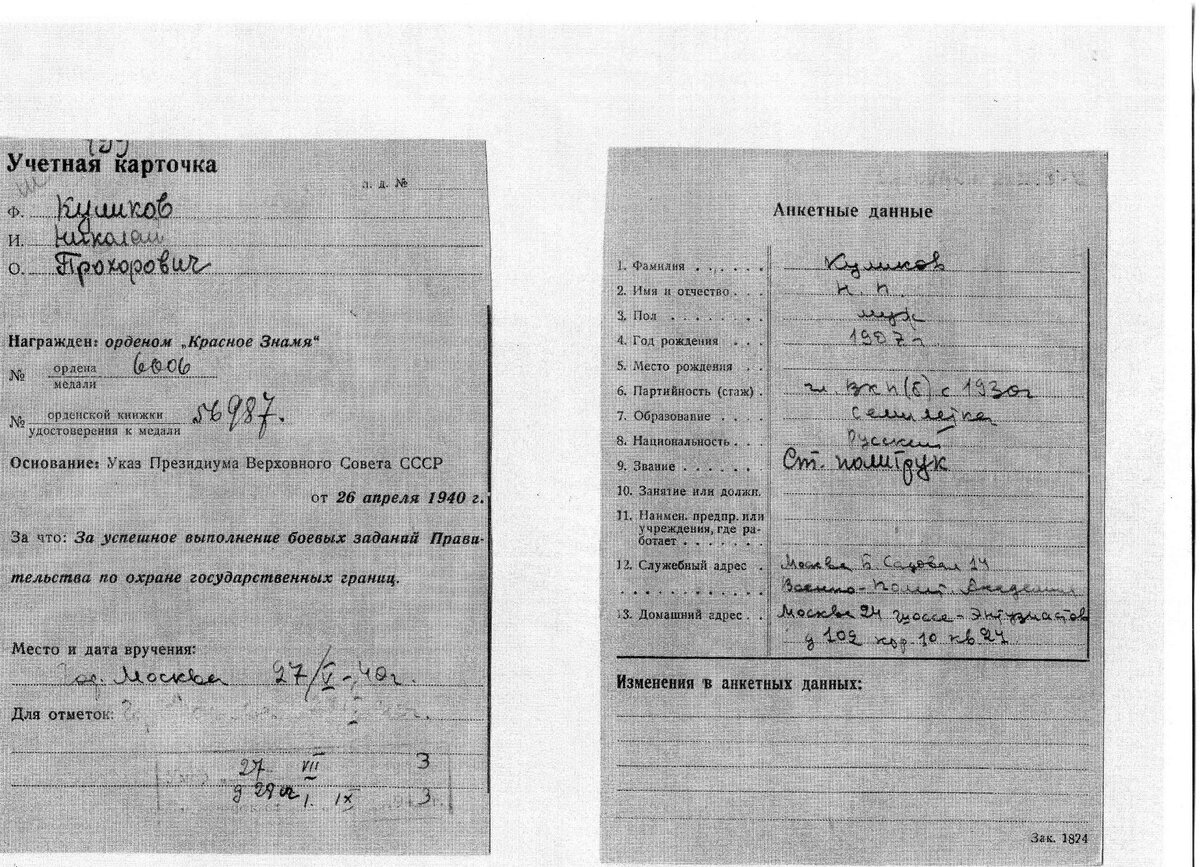 Учетная карточка
л. д. №
Ф. Куликов
И. Николай
О. Прохорович
Награжден: орденом „Красное Знамя“
№ ордена 6006
медали
№ орденской книжки 56987.
удостоверения к медали
Основание: Указ Президиума Верховного Совета СССР
от 26 апреля 1940 г.
За что: За успешное выполнение боевых заданий Прави-
тельства по охране государственных границ.
Место и дата вручения:
Гор. Москва 27/V-40г.
Для отметок:
27 VII 3
I. IX 3
Анкетные данные
1. Фамилия . . . . . . Куликов
2. Имя и отчество . . . Н. П.
3. Пол . . . . . . . . муж
4. Год рождения . . . 1907г
5. Место рождения . .
6. Партийность (стаж) . чл. ВКП(б) с 1930г
7. Образование . . . . семилетка
8. Национальность . . . Русский
9. Звание . . . . . . . Ст. политрук
10. Занятие или должн.
11. Наимен. предпр. или
учреждения, где ра-
ботает . . . . . . .
12. Служебный адрес . Москва Б. Садовая 14
Военно-Полит. Академия
13. Домашний адрес . . Москва 24 шоссе-Энтузиастов
д 102 кор. 10 кв. 27
Изменения в анкетных данных:
Зак. 1824